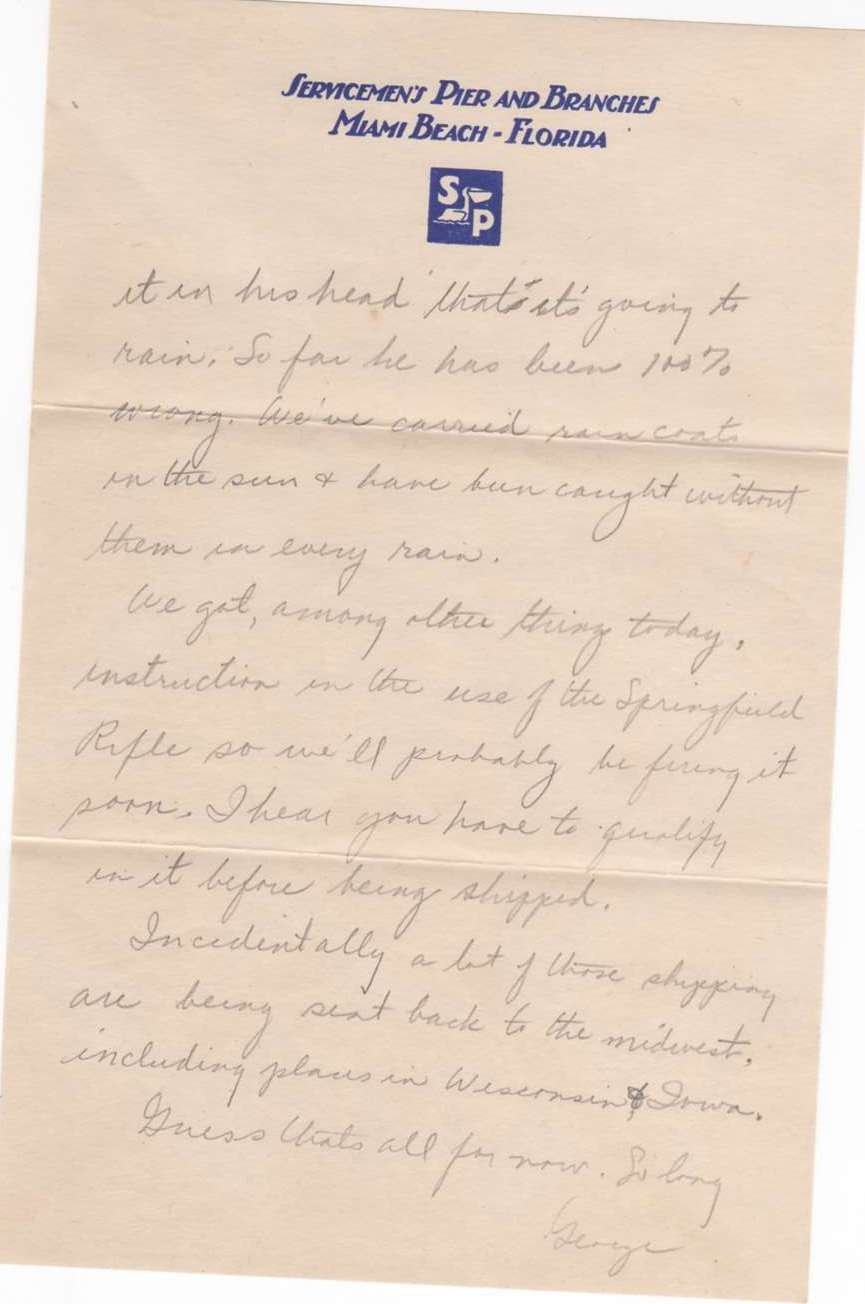 SERVICEMEN'S PIER AND BRANCHES
MIAMI BEACH - FLORIDA
S P
it in his head that it's going to
rain. So far he has been 100%
wrong. We've carried rain coats
in the sun & have been caught without
them in every rain.
We got, among other things today,
instruction in the use of the Springfield
Rifle so we'll probably be firing it
soon. I hear you have to qualify
in it before being shipped.
Incedintally a lot of those shipping
are being sent back to the midwest,
including places in Wisconsin & Iowa.
Guess thats all for now. So long
George